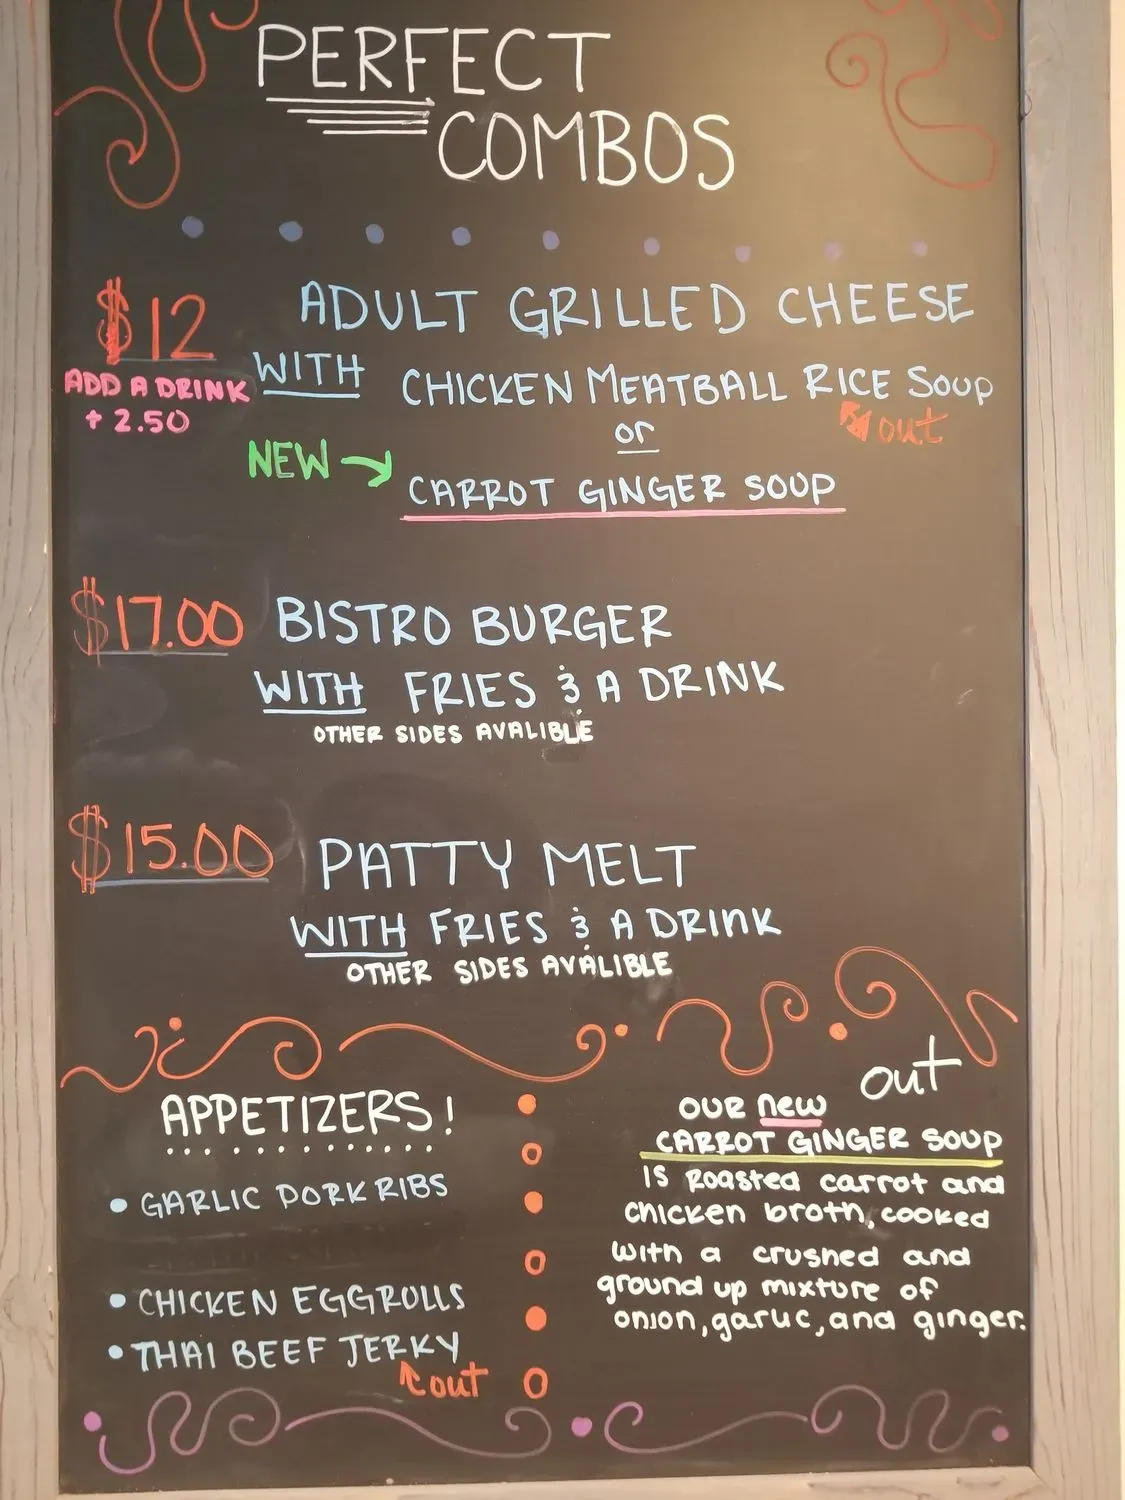 PERFECT
COMBOS
$12
ADULT GRILLED CHEESE
ADD A DRINK
+ 2.50
WITH CHICKEN MEATBALL RICE SOUP
out
or
NEW
CARROT GINGER SOUP
$17.00 BISTRO BURGER
WITH FRIES & A DRINK
OTHER SIDES AVALIBLE
$15.00 PATTY MELT
WITH FRIES & A DRINK
OTHER SIDES AVALIBLE
APPETIZERS!
• GARLIC PORK RIBS
• CHICKEN EGGROLLS
• THAI BEEF JERKY
out
out
OUR new
CARROT GINGER SOUP
IS ROASTED CARROT AND
CHICKEN BROTH, COOKED
WITH A CRUSHED AND
GROUND UP MIXTURE OF
ONION, GARLIC, AND GINGER.